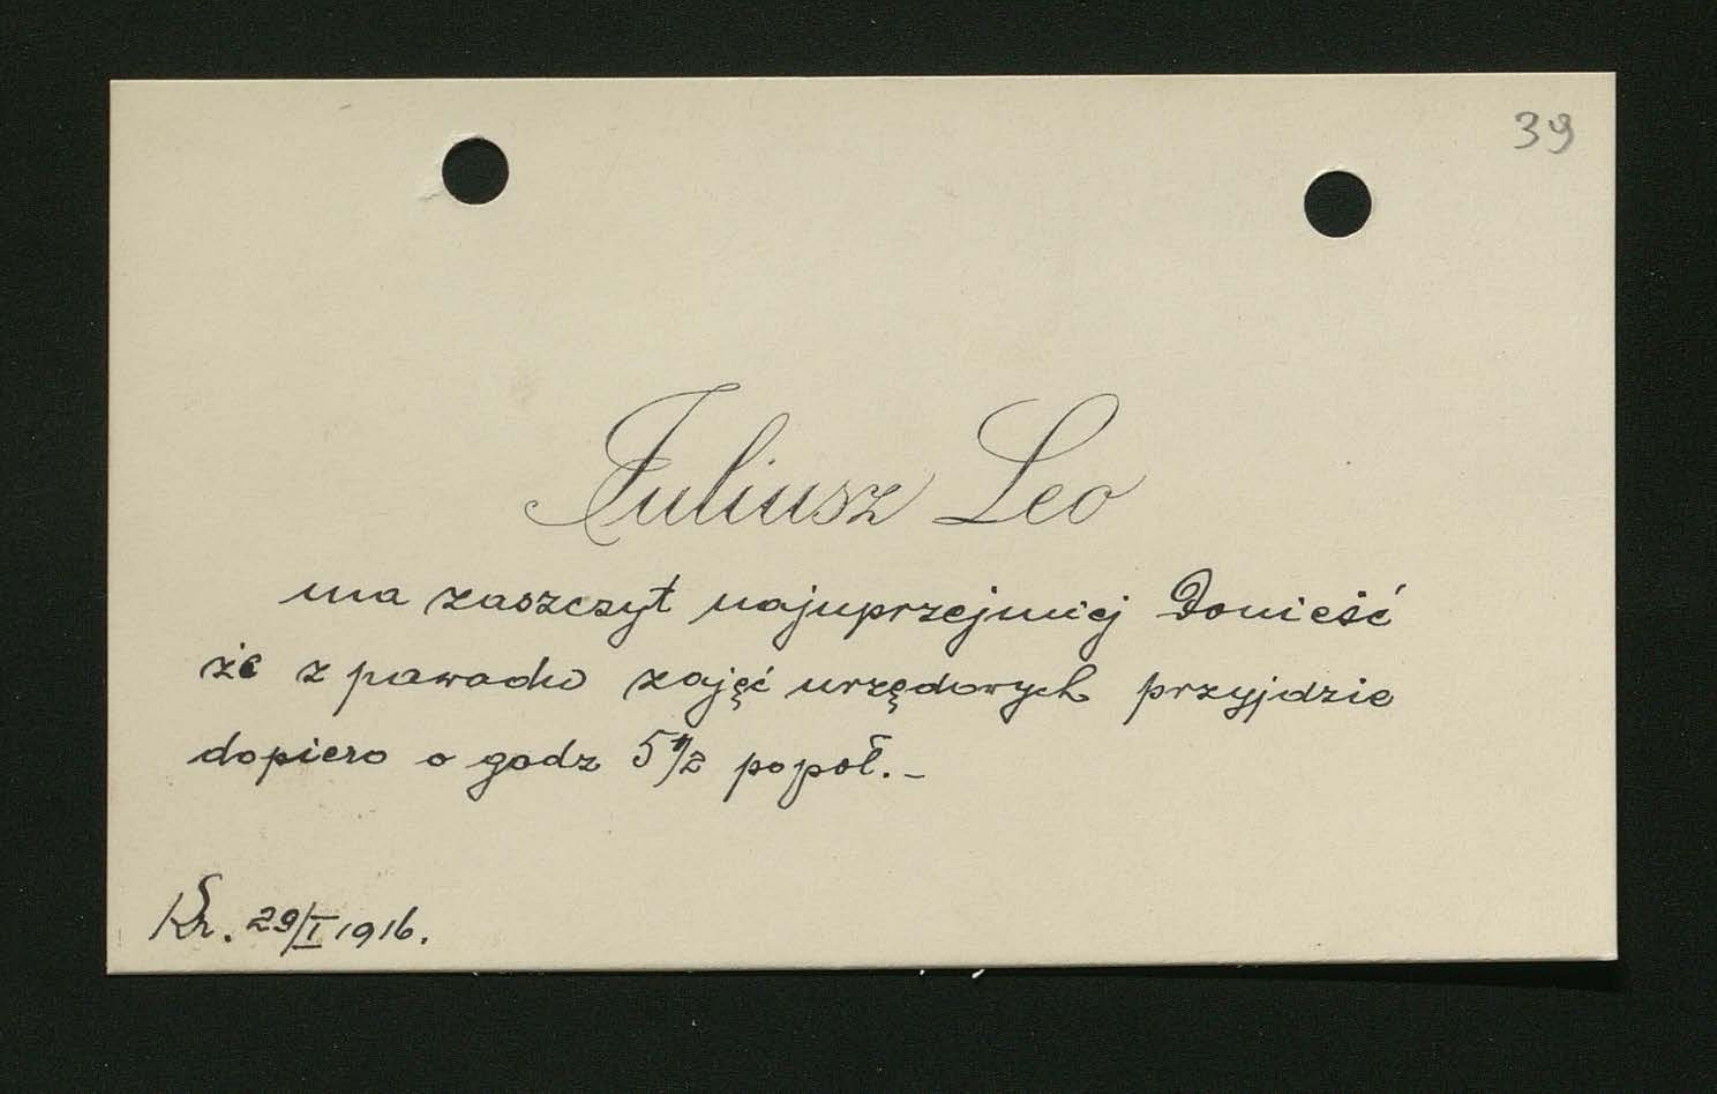 39
Juliusz Leo
ma zaszczyt najuprzejmiej Donieść
że z powodu zajęć urzędowych przyjdzie
dopiero o godz 5 1/2 popoł. -
Kr. 29/I 1916.